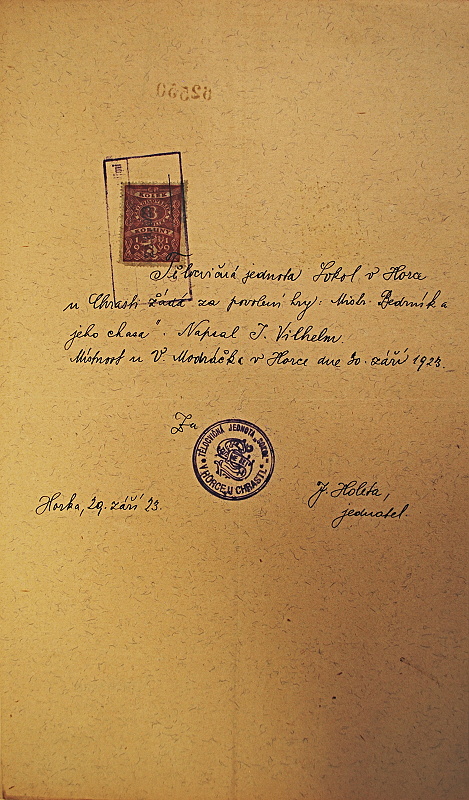 62550
KOLEK
3
KORUNY
Tělocvičná jednota Sokol v Horce
u Chrasti žádá za povolení hry: „Mistr. Bedrník a
jeho chasa". Napsal T. Vilhelm.
Místnost u V. Modráčka v Horce dne 30. září 1923.
Za
TĚLOCVIČNÁ JEDNOTA „SOKOL"
V HORCE U CHRASTI.
Horka, 29. září 23.
J. Holeta,
jednatel.